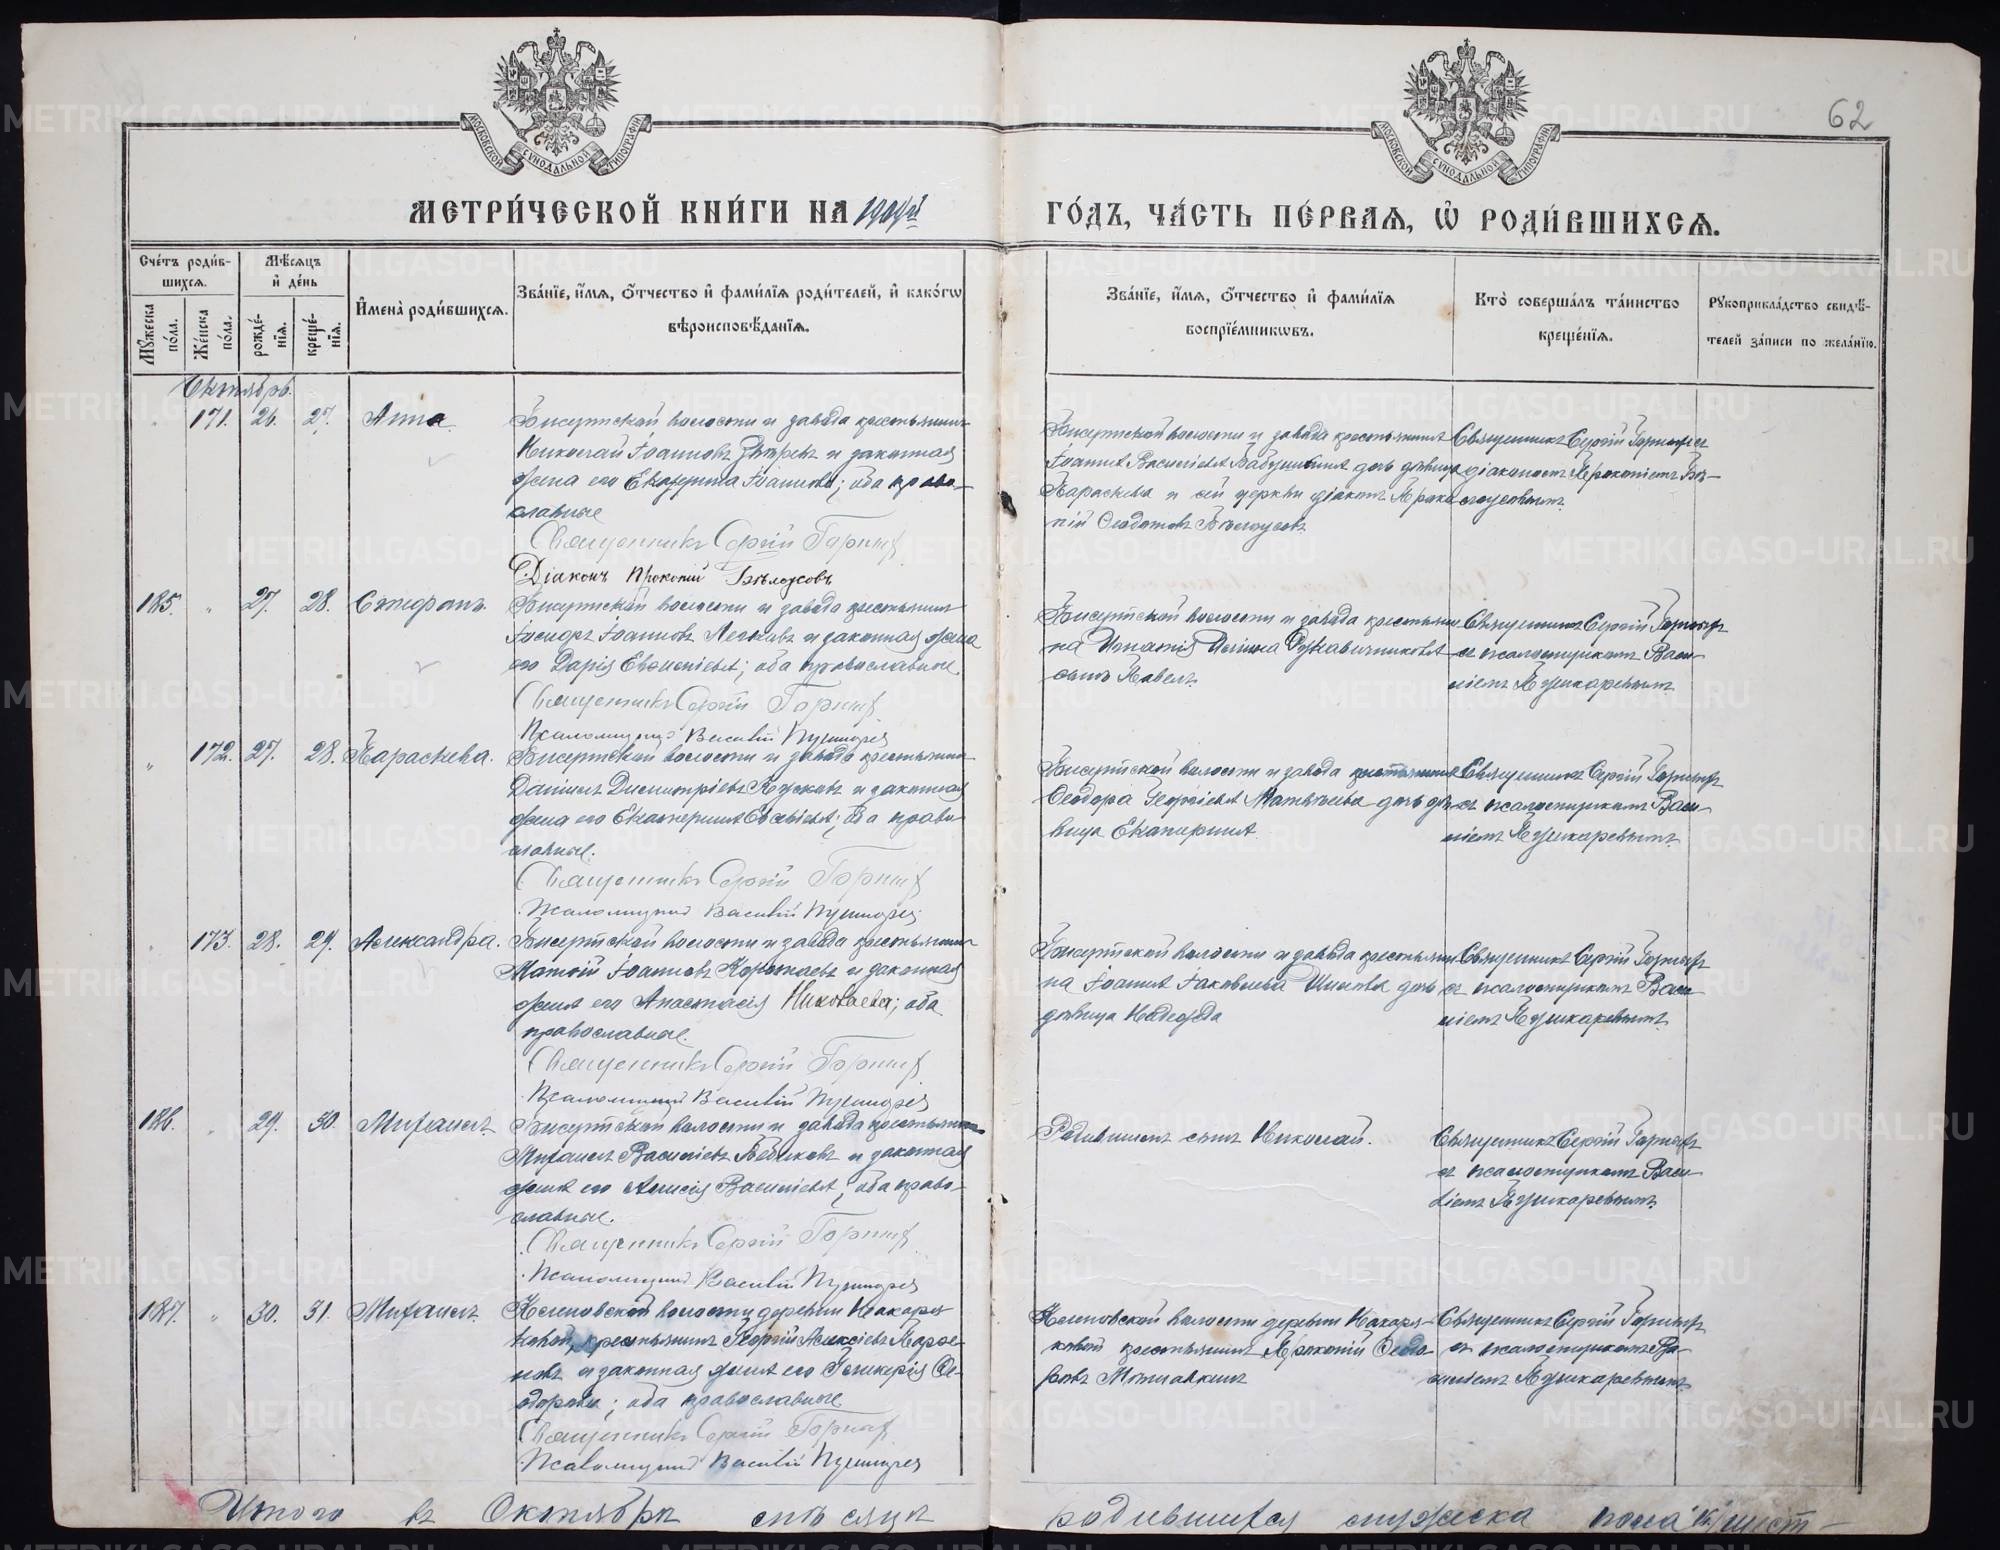 62
МОСКОВСКОЙ СѴНОДАЛЬНОЙ ТИПОГРАФІИ
МОСКОВСКОЙ СѴНОДАЛЬНОЙ ТИПОГРАФІИ
МЕТРИ́ЧЕСКОЙ КНИ́ГИ НА 1909й
ГО́ДЪ, ЧА́СТЬ ПЕ́РВАѦ, Ѽ РОДИ́ВШИХСѦ.
Сче́тъ роди́в-
шихсѧ.
Мѣ́сѧцъ
и҆ де́нь
Мꙋ́жеска
по́ла.
Же́нска
по́ла.
рожде́-
нїѧ.
креще́-
нїѧ.
И҆мена̀ роди́вшихсѧ.
Зва́нїе, и҆́мѧ, ѻ҆́тчество и҆ фами́лїѧ роди́телей, и҆ како́гѡ
вѣроисповѣ́данїѧ.
Зва́нїе, и҆́мѧ, ѻ҆́тчество и҆ фами́лїѧ
воспрїе́мникѡвъ.
Кто̀ соверша́лъ та́инство
креще́нїѧ.
Рꙋкоприкла́дство свидѣ́-
телей за́писи по жела́нїю.
Октябрь.
171. 26. 27. Анна
Бисертской волости и завода крестьянинъ
Николай Іоанновъ и законная
жена его Екатерина Іоаннова; оба право-
славные
Священникъ Сергій
Діаконъ Прокопій Бѣлоусовъ
Бисертской волости и завода крестьянина
Іоанна Васильева Бабушкина дочь дѣвица
Параскева и сей церкви діаконъ Проко
пій Ѳеодотовъ Бѣлоусовъ
Священникъ Сергій
съ діакономъ Прокопіемъ Бѣ-
лоусовымъ.
185. " 27. 28. Стефанъ.
Бисертской волости и завода крестьянинъ
Іосифъ Іоанновъ и законная жена
его Дарія; оба православные
Священникъ Сергій
Псаломщикъ Василій Пушкарев
Бисертской волости и завода крестьяни
на Игнатія Рукавичникова
сынъ Павелъ.
Священникъ Сергій
съ псаломщикомъ Васи
ліемъ Пушкаревымъ.
" 172. 27. 28. Параскева.
Бисертской волости и завода крестьянинъ
Даніилъ Димитріевъ и законная
жена его Екатерина; оба право
славные.
Священникъ Сергій
Псаломщикъ Василій Пушкарев
Бисертской волости и завода крестьянина
Ѳеодора Георгіева Матвѣева дочь дѣ
вица Екатерина
Священникъ Сергій
съ псаломщикомъ Васи
ліемъ Пушкаревымъ.
" 173. 28. 29. Александра.
Бисертской волости и завода крестьянинъ
Іоанновъ и законная
жена его Анастасія Николаева; оба
православные.
Священникъ Сергій
Псаломщикъ Василій Пушкарев
Бисертской волости и завода крестьяни
на Іоанна Іаковлева дочь
дѣвица Надежда
Священникъ Сергій
съ псаломщикомъ Васи
ліемъ Пушкаревымъ.
186. " 29. 30. Михаилъ.
Бисертской волости и завода крестьянинъ
Михаилъ Васильевъ и законная
жена его Васильева; оба право-
славные.
Священникъ Сергій
Псаломщикъ Василій Пушкарев
Родившихъ сынъ Николай.
Священникъ Сергій
съ псаломщикомъ Васи
ліемъ Пушкаревымъ.
187. " 30. 31. Михаилъ.
Кленовской волости деревни Накаря
ковой, крестьянинъ Георгій Алексіевъ
и законная жена его Гликерія Ѳе-
одорова; оба православные
Священникъ Сергій
Псаломщикъ Василій Пушкарев
Кленовской волости деревни Накаря-
ковой крестьянинъ Прокопій Ѳеодо
ровъ
Священникъ Сергій
съ псаломщикомъ Ва-
силіемъ Пушкаревымъ.
Итого въ Октябрѣ мѣсяцѣ
родившихся мужеска пола шест-